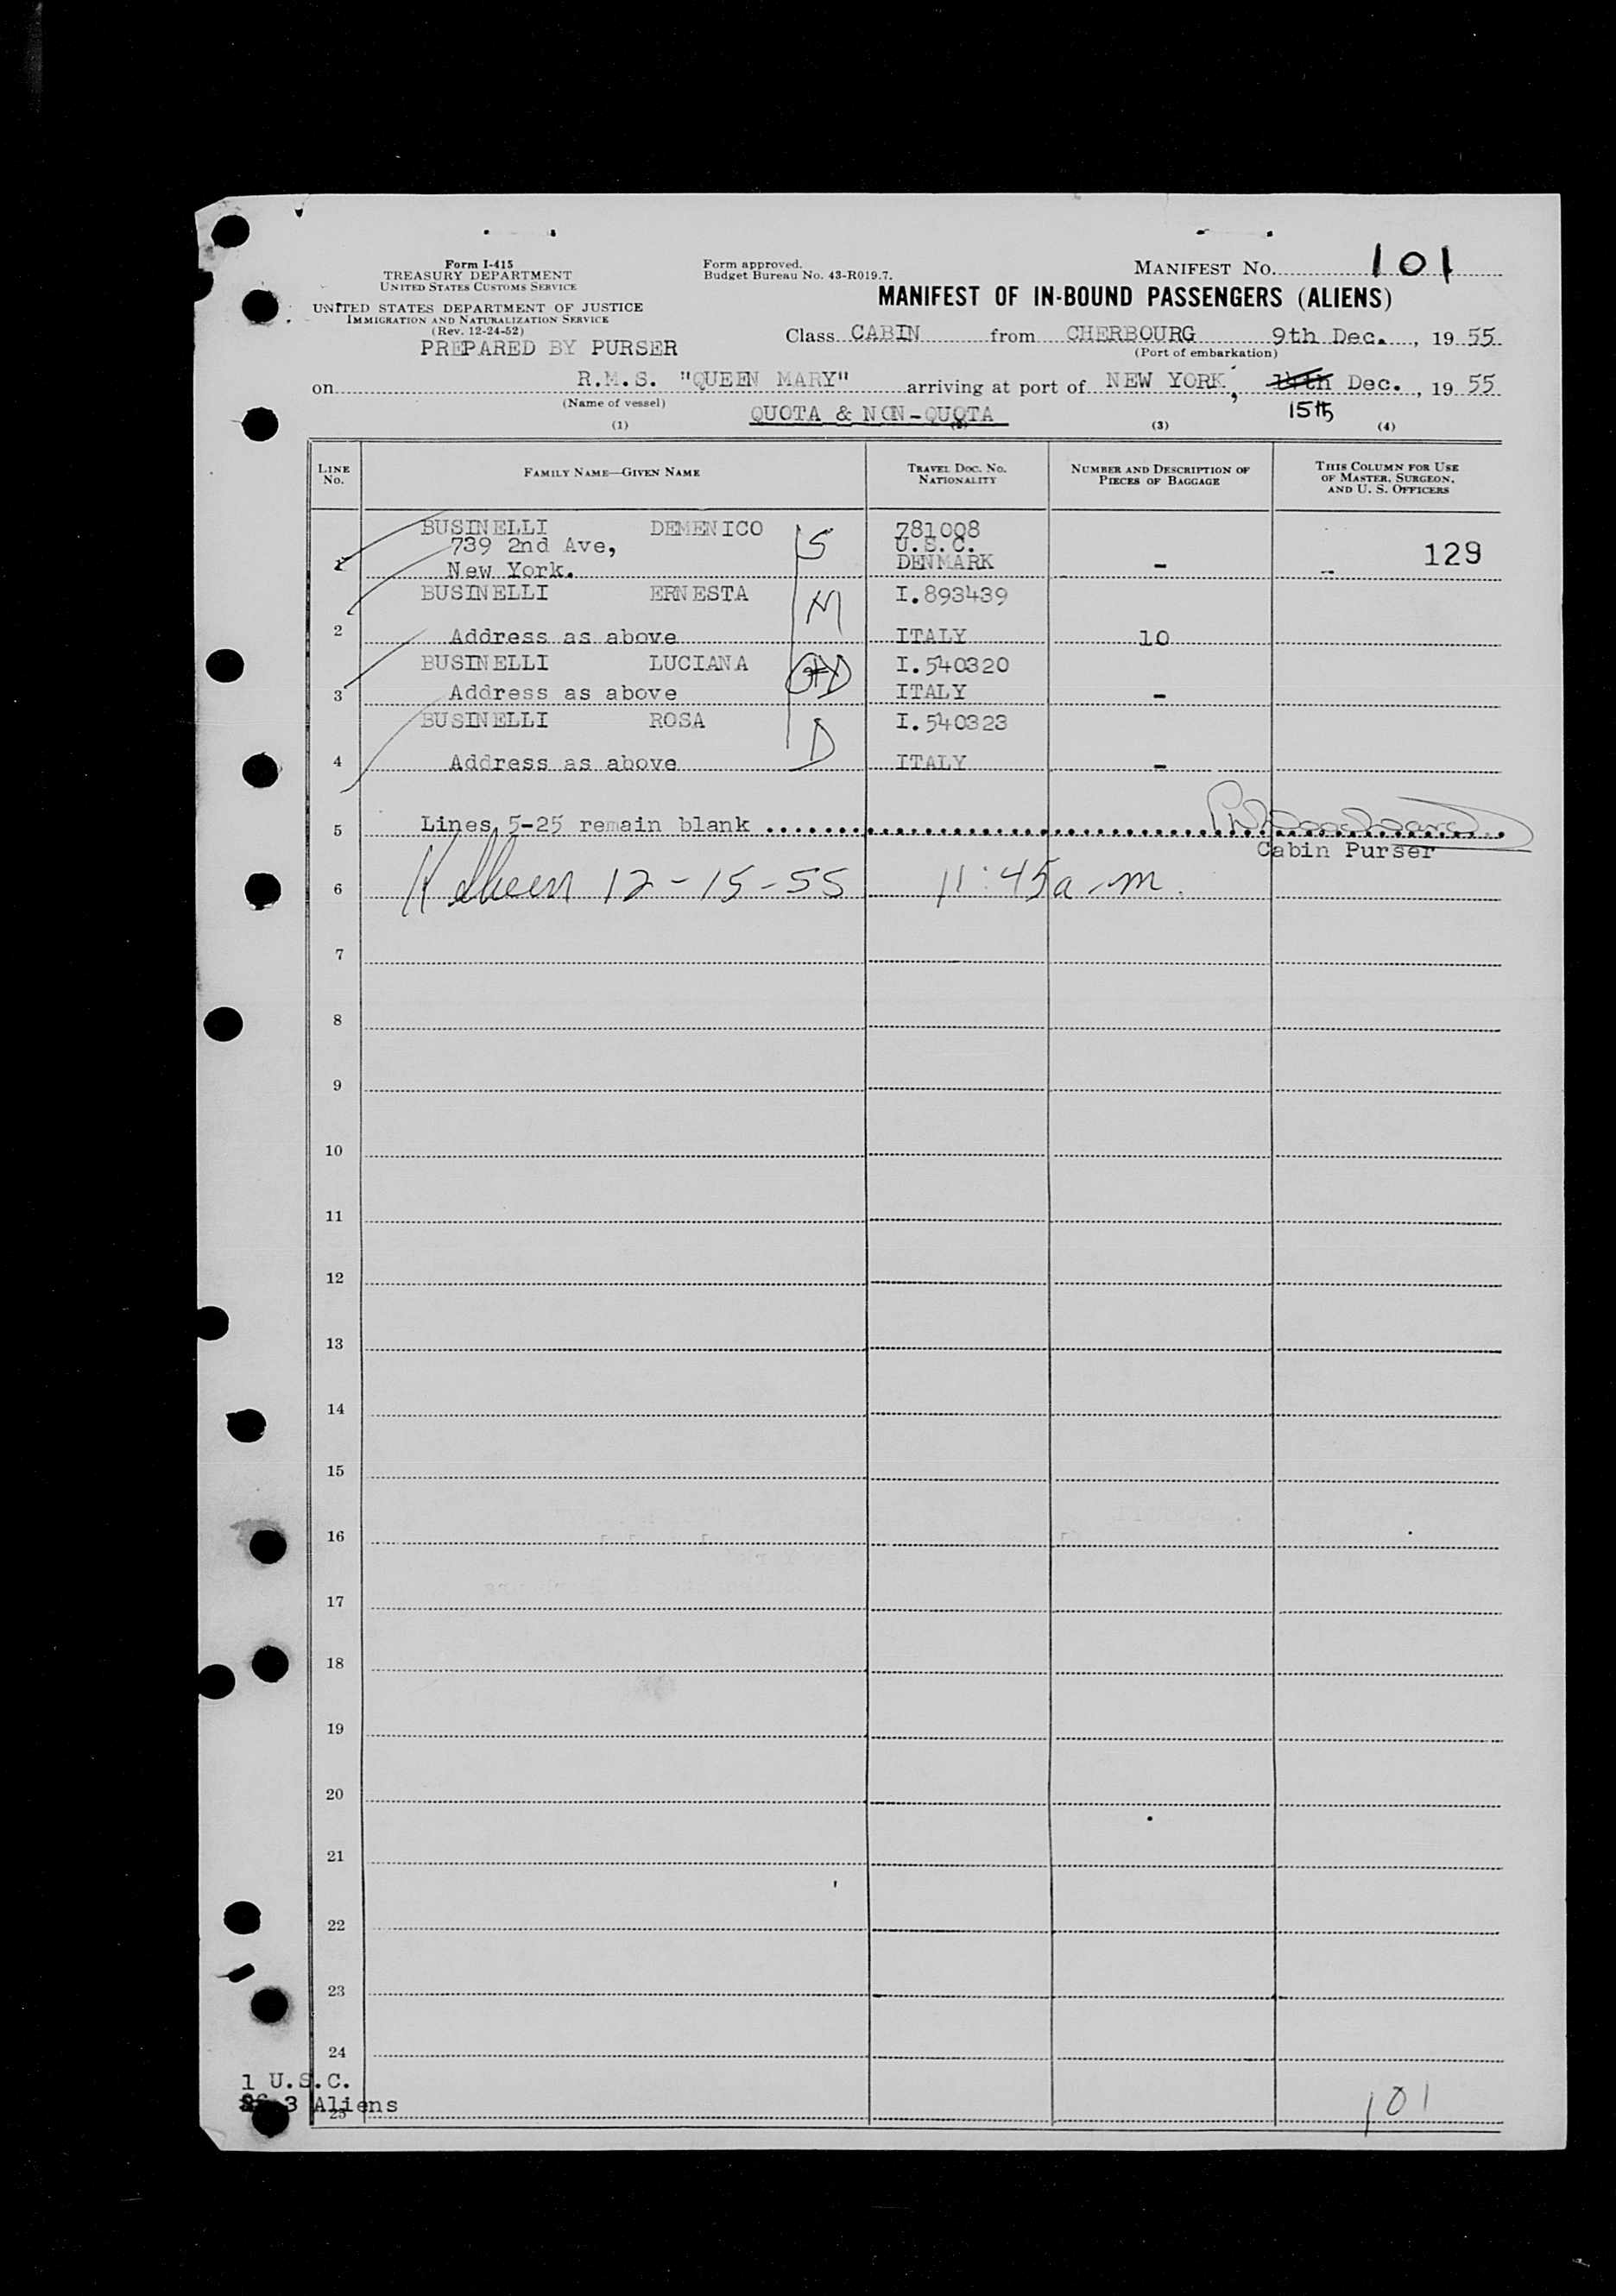 Form I-415
TREASURY DEPARTMENT
UNITED STATES CUSTOMS SERVICE
UNITED STATES DEPARTMENT OF JUSTICE
IMMIGRATION AND NATURALIZATION SERVICE
(Rev. 12-24-52)
PREPARED BY PURSER
Form approved.
Budget Bureau No. 43-R019.7.
MANIFEST NO. 101
MANIFEST OF IN-BOUND PASSENGERS (ALIENS)
Class CABIN from CHERBOURG 9th Dec., 19 55
(Port of embarkation)
on R.M.S. "QUEEN MARY" arriving at port of NEW YORK, 14th Dec., 19 55
15th
(Name of vessel)
QUOTA & NON-QUOTA
(1) (2) (3) (4)
LINE No. FAMILY NAME—GIVEN NAME TRAVEL DOC. NO. NATIONALITY NUMBER AND DESCRIPTION OF PIECES OF BAGGAGE THIS COLUMN FOR USE OF MASTER, SURGEON, AND U. S. OFFICERS
BUSINELLI DEMENICO S 781008
739 2nd Ave, U.S.C.
1 New York. DENMARK - - 129
BUSINELLI ERNESTA M I.893439
2 Address as above ITALY 10
BUSINELLI LUCIANA D I.540320
3 Address as above ITALY -
BUSINELLI ROSA D I.540323
4 Address as above ITALY -
5 Lines 5-25 remain blank
Cabin Purser
6 12-15-55 11:45 a.m.
7
8
9
10
11
12
13
14
15
16
17
18
19
20
21
22
23
24
1 U.S.C.
3 Aliens
25
101